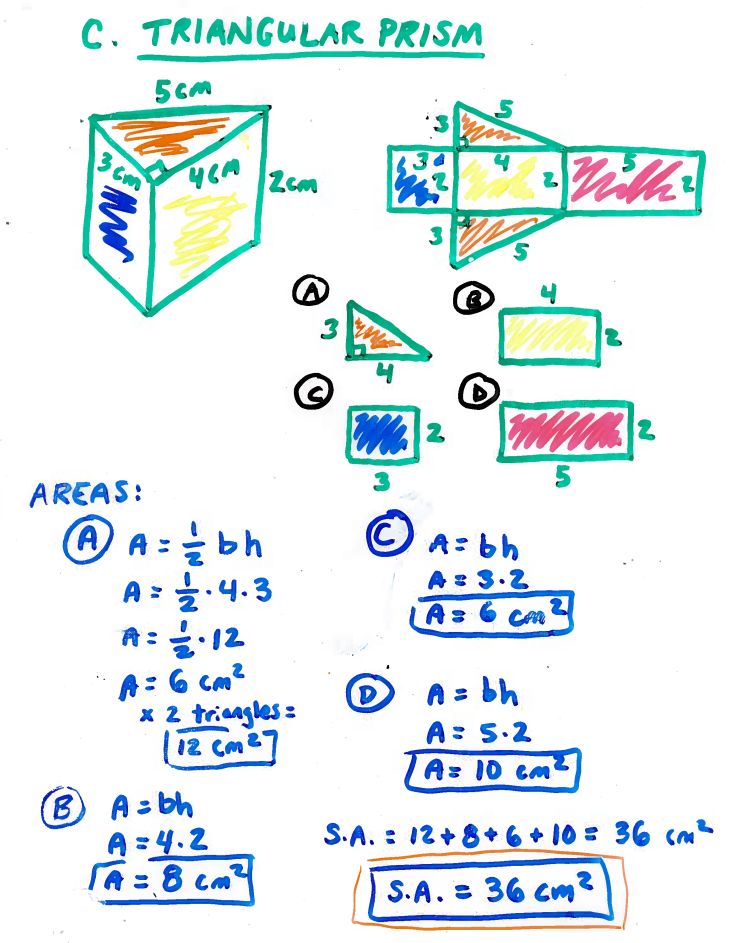 C. TRIANGULAR PRISM
5cm
3cm
4cm
2cm
3
5
3
2
4
2
5
2
3
5
A
3
4
B
4
2
C
2
3
D
2
5
AREAS:
A
A = 1/2 bh
A = 1/2 · 4 · 3
A = 1/2 · 12
A = 6 cm²
x 2 triangles =
12 cm²
B
A = bh
A = 4 · 2
A = 8 cm²
C
A = bh
A = 3 · 2
A = 6 cm²
D
A = bh
A = 5 · 2
A = 10 cm²
S.A. = 12 + 8 + 6 + 10 = 36 cm²
S.A. = 36 cm²